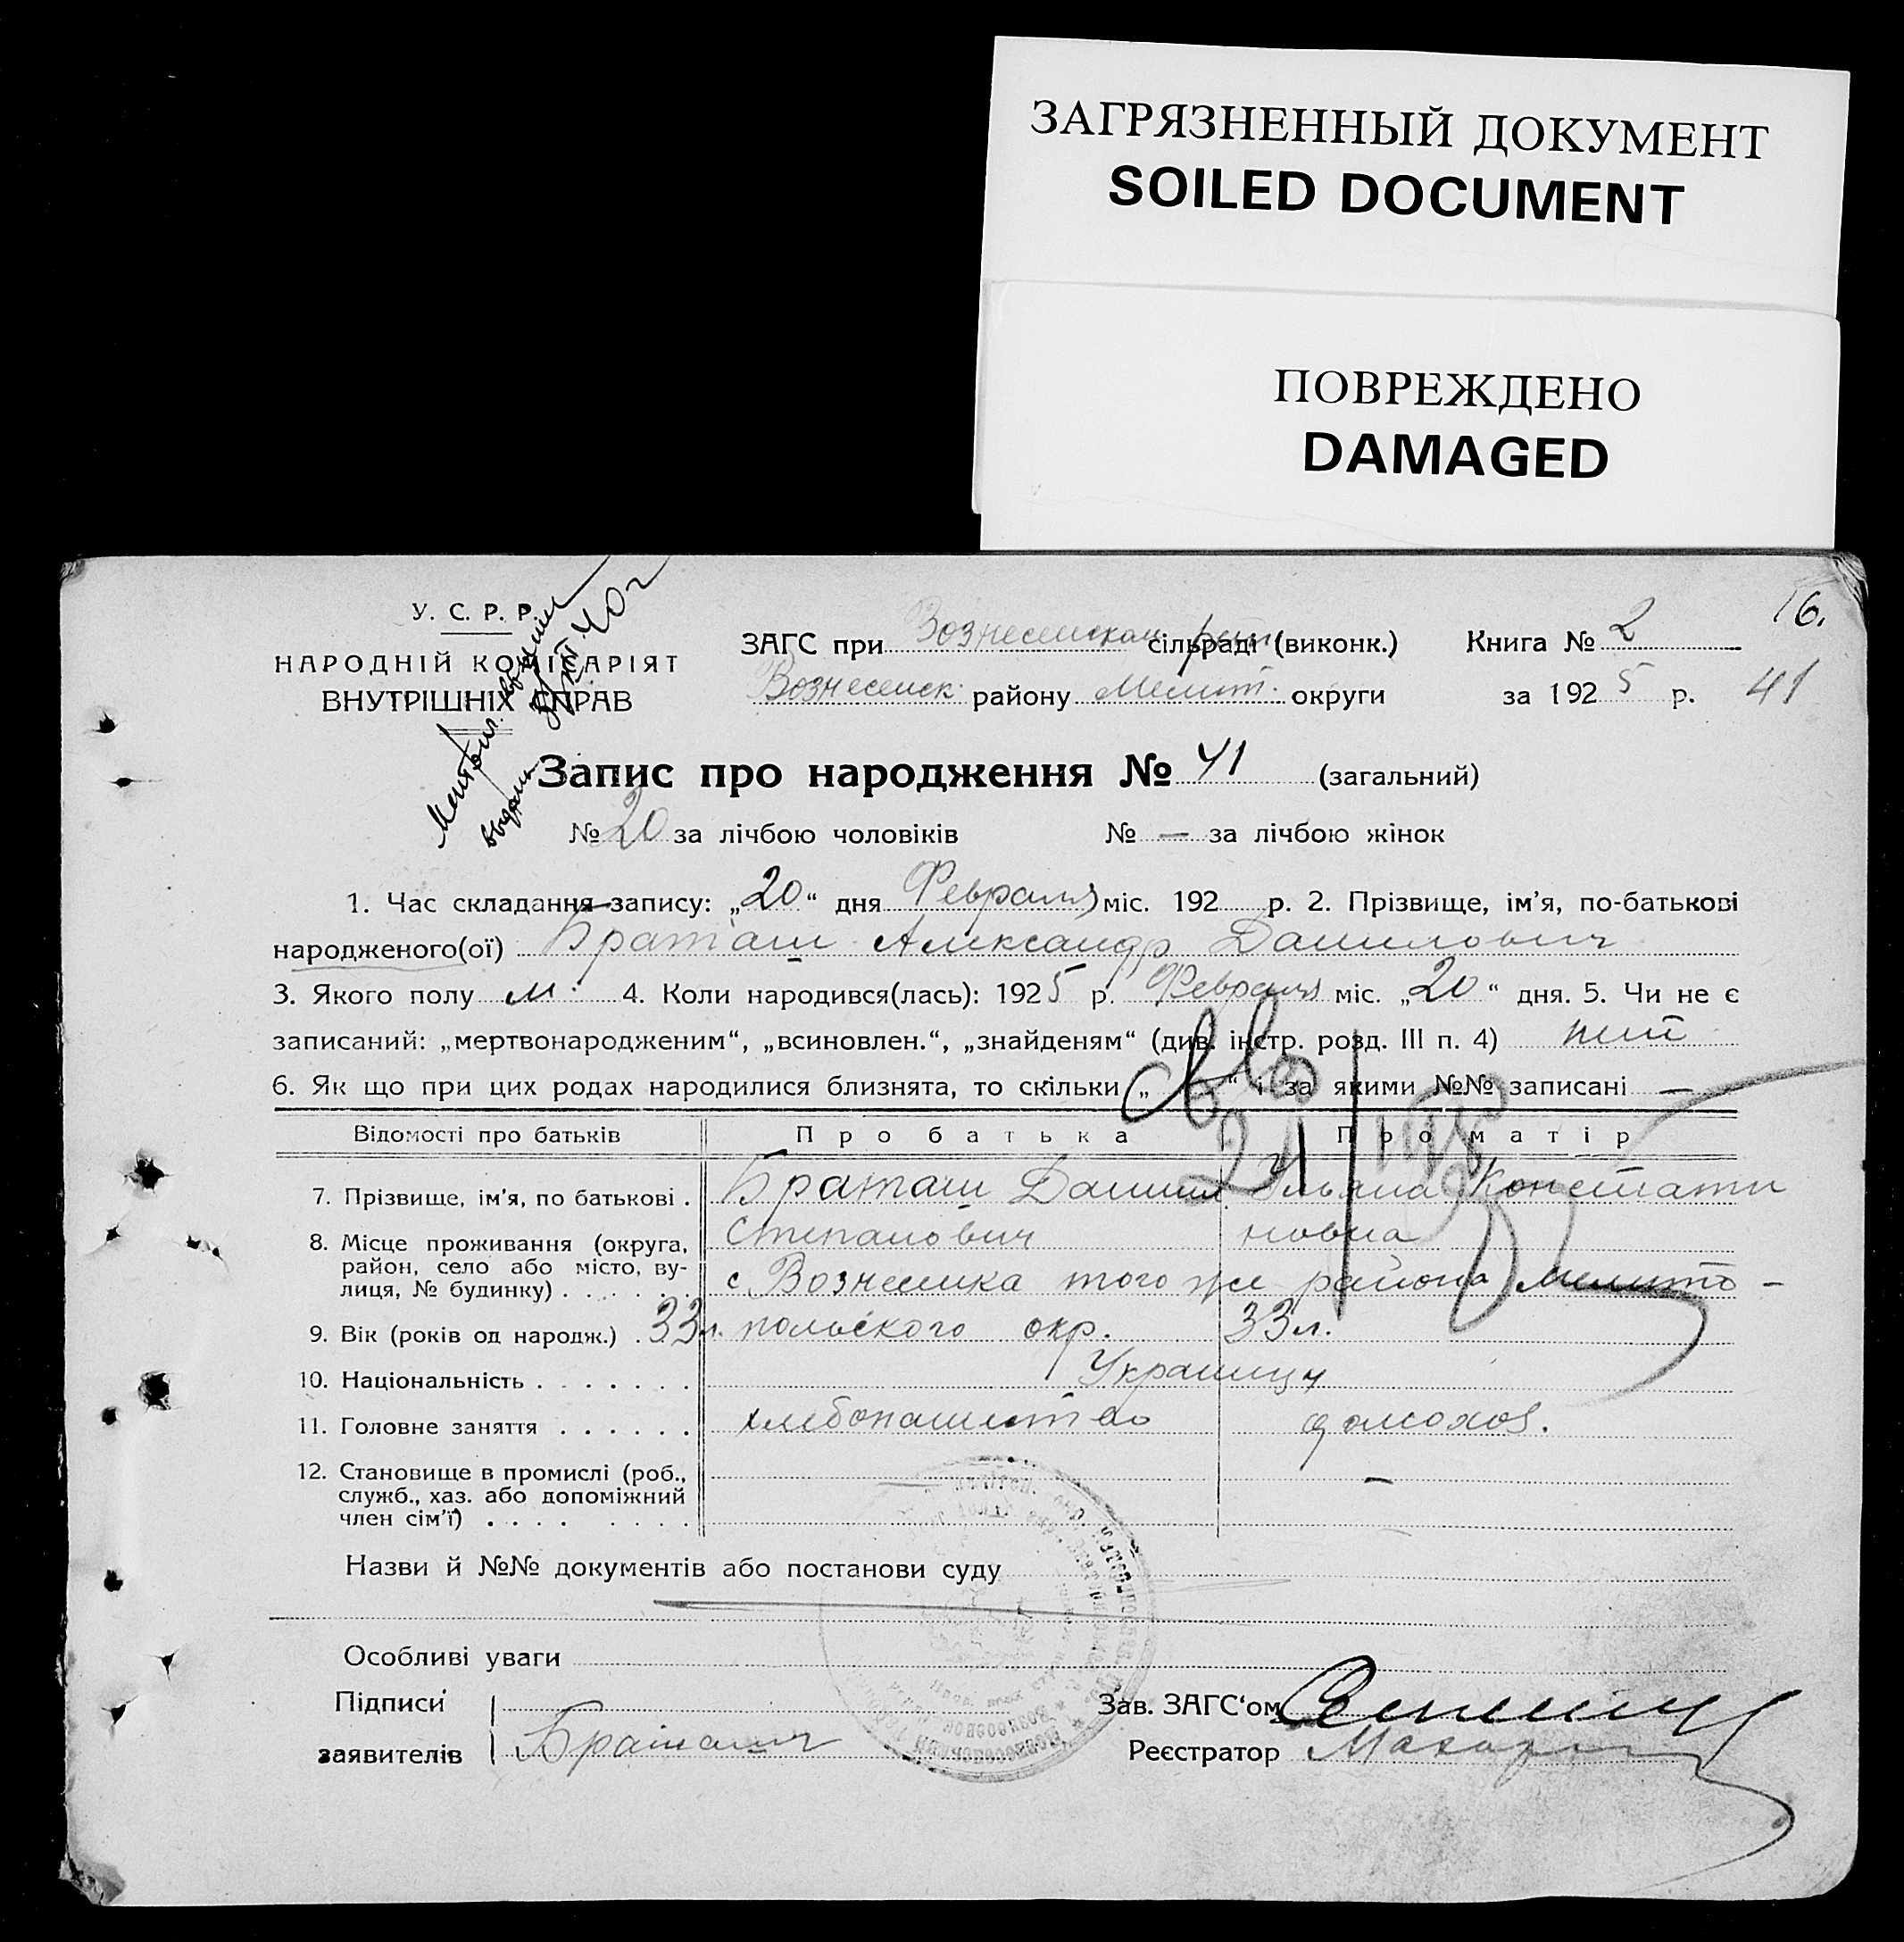 ЗАГРЯЗНЕННЫЙ ДОКУМЕНТ
SOILED DOCUMENT
ПОВРЕЖДЕНО
DAMAGED
16.
У. С. Р. Р.
НАРОДНІЙ КОМІСАРІЯТ
ВНУТРІШНІХ СПРАВ
ЗАГС при Вознесенском сільраді (виконк.) Книга № 2
Вознесенск. району Мелит. округи за 1925 р. 41
Запис про народження № 41 (загальний)
№ 20 за лічбою чоловіків № — за лічбою жінок
1. Час складання запису: „20“ дня Февраля міс. 192 р. 2. Прізвище, ім’я, по-батькові
народженого(ої) Браташ Александр Данилович
3. Якого полу м. 4. Коли народився(лась): 1925 р. Февраля міс. „20“ дня. 5. Чи не є
записаний: „мертвонародженим“, „всиновлен.“, „знайденям“ (див. інстр. розд. III п. 4) нет
6. Як що при цих родах народилися близнята, то скільки „ “ і за якими №№ записані —
Відомості про батьків Про батька Про матір
7. Прізвище, ім’я, по батькові . Браташ Даниил Ульяна Констати
Степанович новна
8. Місце проживання (округа,
район, село або місто, ву-
лиця, № будинку) . . . . . . с Вознесенка того же района Мелито-
9. Вік (років од народж.) . 33л. польского окр. 33л.
10. Національність . . . . . . . Украинцы
11. Головне заняття . . . . . . хлебопашество домохоз.
12. Становище в промислі (роб., —
служб., хаз. або допоміжний
член сім’ї) . . . . . . . .
Назви й №№ документів або постанови суду
Особливі уваги
Підписи Зав. ЗАГС‘ом
заявителів Браташ Реєстратор